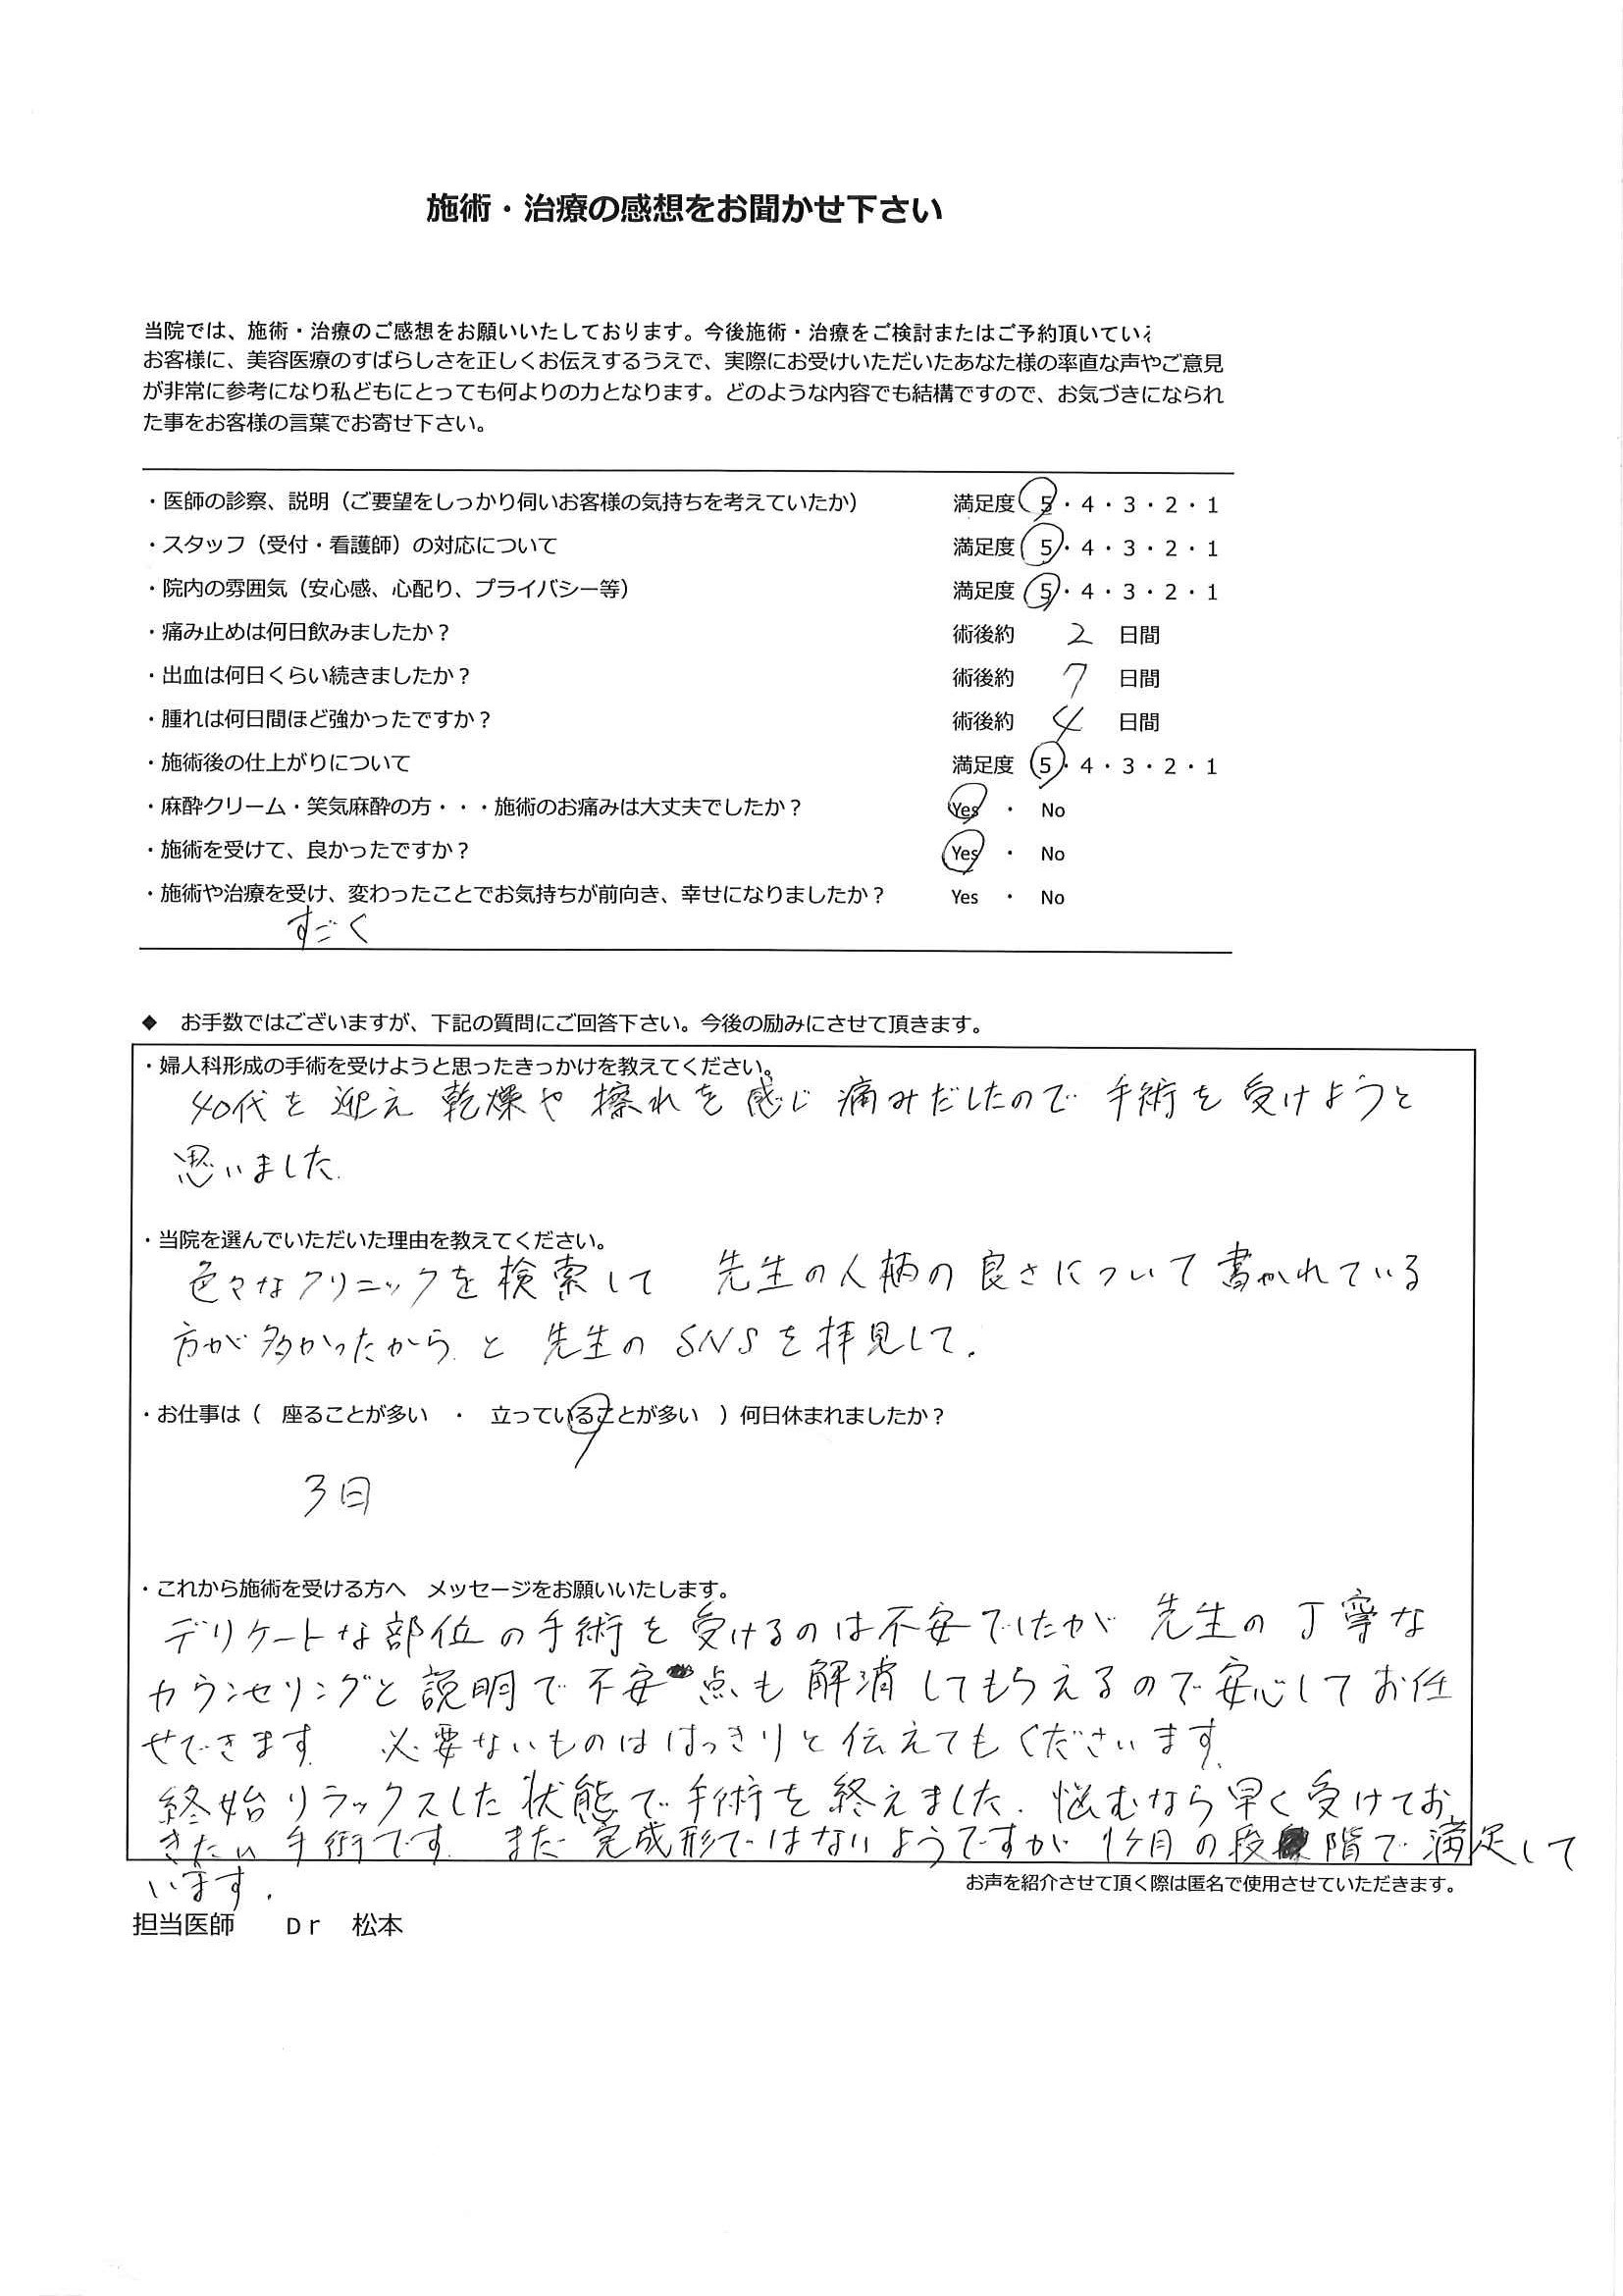 施術・治療の感想をお聞かせ下さい
当院では、施術・治療のご感想をお願いいたしております。今後施術・治療をご検討またはご予約頂いている
お客様に、美容医療のすばらしさを正しくお伝えするうえで、実際にお受けいただいたあなた様の率直な声やご意見
が非常に参考になり私どもにとっても何よりの力となります。どのような内容でも結構ですので、お気づきになられ
た事をお客様の言葉でお寄せ下さい。
・医師の診察、説明（ご要望をしっかり伺いお客様の気持ちを考えていたか） 満足度 5・4・3・2・1
・スタッフ（受付・看護師）の対応について 満足度 5・4・3・2・1
・院内の雰囲気（安心感、心配り、プライバシー等） 満足度 5・4・3・2・1
・痛み止めは何日飲みましたか？ 術後約 2 日間
・出血は何日くらい続きましたか？ 術後約 7 日間
・腫れは何日間ほど強かったですか？ 術後約 4 日間
・施術後の仕上がりについて 満足度 5・4・3・2・1
・麻酔クリーム・笑気麻酔の方・・・施術のお痛みは大丈夫でしたか？ Yes ・ No
・施術を受けて、良かったですか？ Yes ・ No
・施術や治療を受け、変わったことでお気持ちが前向き、幸せになりましたか？ Yes ・ No
すごく
◆ お手数ではございますが、下記の質問にご回答下さい。今後の励みにさせて頂きます。
・婦人科形成の手術を受けようと思ったきっかけを教えてください。
40代を迎え 乾燥や擦れを感じ 痛みだしたので 手術を受けようと
思いました.
・当院を選んでいただいた理由を教えてください。
色々なクリニックを検索して 先生の人柄の良さについて書かれている
方が多かったから. と 先生のSNSを拝見して.
・お仕事は（ 座ることが多い ・ 立っていることが多い ）何日休まれましたか？
3日
・これから施術を受ける方へ メッセージをお願いいたします。
デリケートな部位の手術を受けるのは不安でしたが 先生の丁寧な
カウンセリングと説明で不安点も解消してもらえるので安心してお任
せできます. 必要ないものははっきりと伝えてもくださいます.
終始リラックスした状態で手術を終えました. 悩むなら早く受けてお
きたい手術です. まだ完成形ではないようですが 1ヶ月の段階で満足して
います.
お声を紹介させて頂く際は匿名で使用させていただきます。
担当医師 Dr 松本